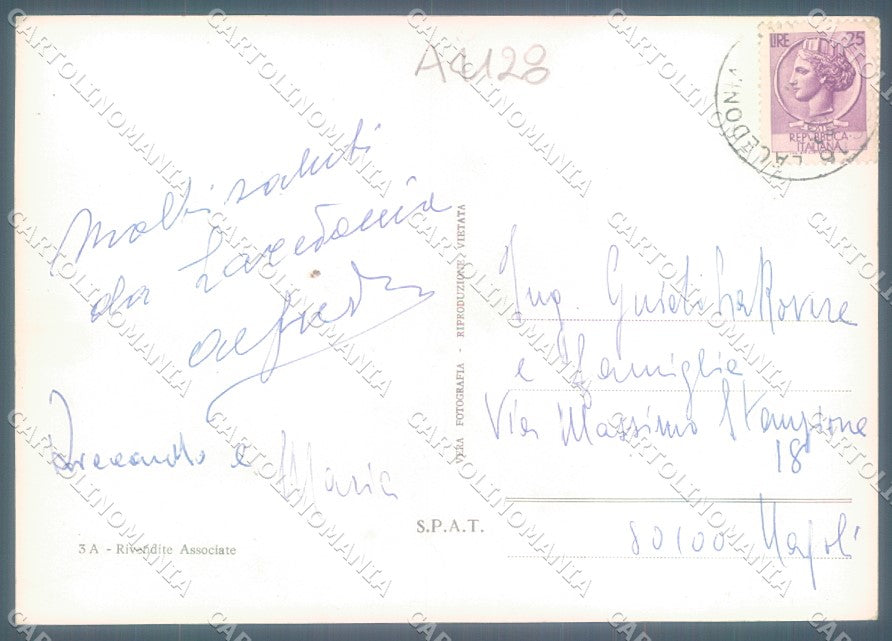 A4128
LIRE 25
REPUBBLICA
ITALIANA
LACEDONIA
Molti saluti
da Lacedonia
Alfredo
e Maria
3 A - Rivendite Associate
VERA FOTOGRAFIA - RIPRODUZIONE VIETATA
S.P.A.T.
Ing. La Rovere
e Famiglia
Via Massimo Stanzione
18
80100 Napoli
CARTOLINOMANIA